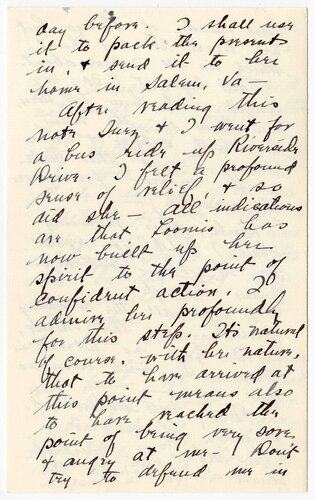 day before. I shall use
it to pack the presents
in, & send it to her
home in Salem, Va —
After reading this
note Suzy & I went for
a bus ride up Riverside
Drive. I felt a profound
sense of relief, & so
did she — all indications
are that Loomis has
now built up her
spirit to the point of
confident action. I
admire her profoundly
for this step. Its natural
of course, with her nature,
that to have arrived at
this point means also
to have reached the
point of being very sore
& angry at me — Don't
try to defend me in